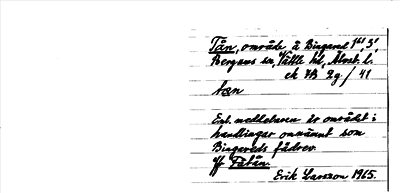 Tån, område å Bingared 1/61, 3/1,
Bergums sn, Vättle hd, Älvsb. l.
ek RB 2g / 41
tɑ̄n
Enl. meddelaren är området i
handlingar omnämnt som
Bingareds fädrev.
Jfr Tåtån.
Erik Larsson 1965.